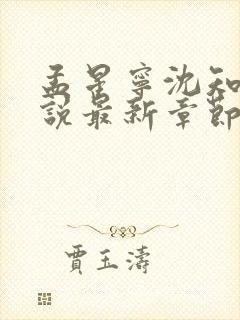 孟星寧沈知
說最新章節
賈玉濤